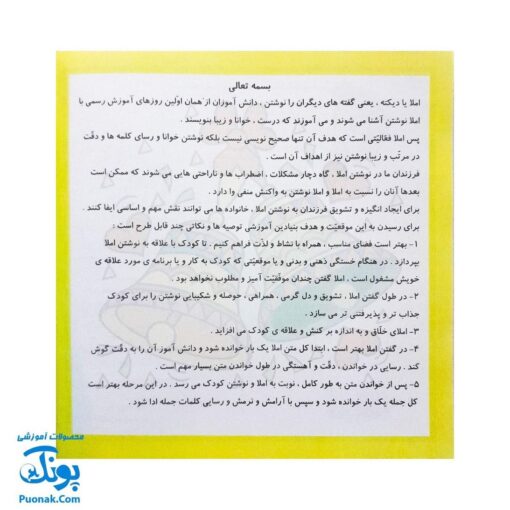 بسمه تعالی
املا یا دیکته ، یعنی گفته های دیگران را نوشتن ، دانش آموزان از همان اوّلین روزهای آموزش رسمی با
املا نوشتن آشنا می شوند و می آموزند که درست ، خوانا و زیبا بنویسند .
پس املا فعّالیّتی است که هدف آن تنها صحیح نویسی نیست بلکه نوشتن خوانا و رسای کلمه ها و دقّت
در مرتّب و زیبا نوشتن نیز از اهداف آن است .
فرزندان ما در نوشتن املا ، گاه دچار مشکلات ، اضطراب ها و ناراحتی هایی می شوند که ممکن است
بعدها آنان را نسبت به املا و املا نوشتن به واکنش منفی وا دارد .
برای ایجاد انگیزه و تشویق فرزندان به نوشتن املا ، خانواده ها می توانند نقش مهم و اساسی ایفا کنند .
برای رسیدن به این موقعیّت و هدف بنیادین آموزشی توصیه ها و نکاتی چند قابل طرح است :
۱- بهتر است فضای مناسب ، همراه با نشاط و لذّت فراهم کنیم . تا کودک با علاقه به نوشتن املا
بپردازد . در هنگام خستگی ذهنی و بدنی و یا موقعیّتی که کودک به کار و یا برنامه ی مورد علاقه ی
خویش مشغول است . املا گفتن چندان موفّقیّت آمیز و مطلوب نخواهد بود .
۲- در طول گفتن املا ، تشویق و دل گرمی ، همراهی ، حوصله و شکیبایی نوشتن را برای کودک
جذاب تر و پذیرفتنی تر می سازد .
۳- املای خلّاق و به اندازه بر کنش و علاقه ی کودک می افزاید .
۴- در گفتن املا بهتر است ، ابتدا کل متن املا یک بار خوانده شود و دانش آموز آن را به دقّت گوش
کند . رسایی در خواندن ، دقّت و آهستگی در طول خواندن متن بسیار مهم است .
۵- پس از خواندن متن به طور کامل ، نوبت به املا و نوشتن کودک می رسد . در این مرحله بهتر است
کل جمله یک بار خوانده شود و سپس با آرامش و نرمش و رسایی کلمات جمله ادا شود .
محصولات آموزشی
پونک
Puonak.Com